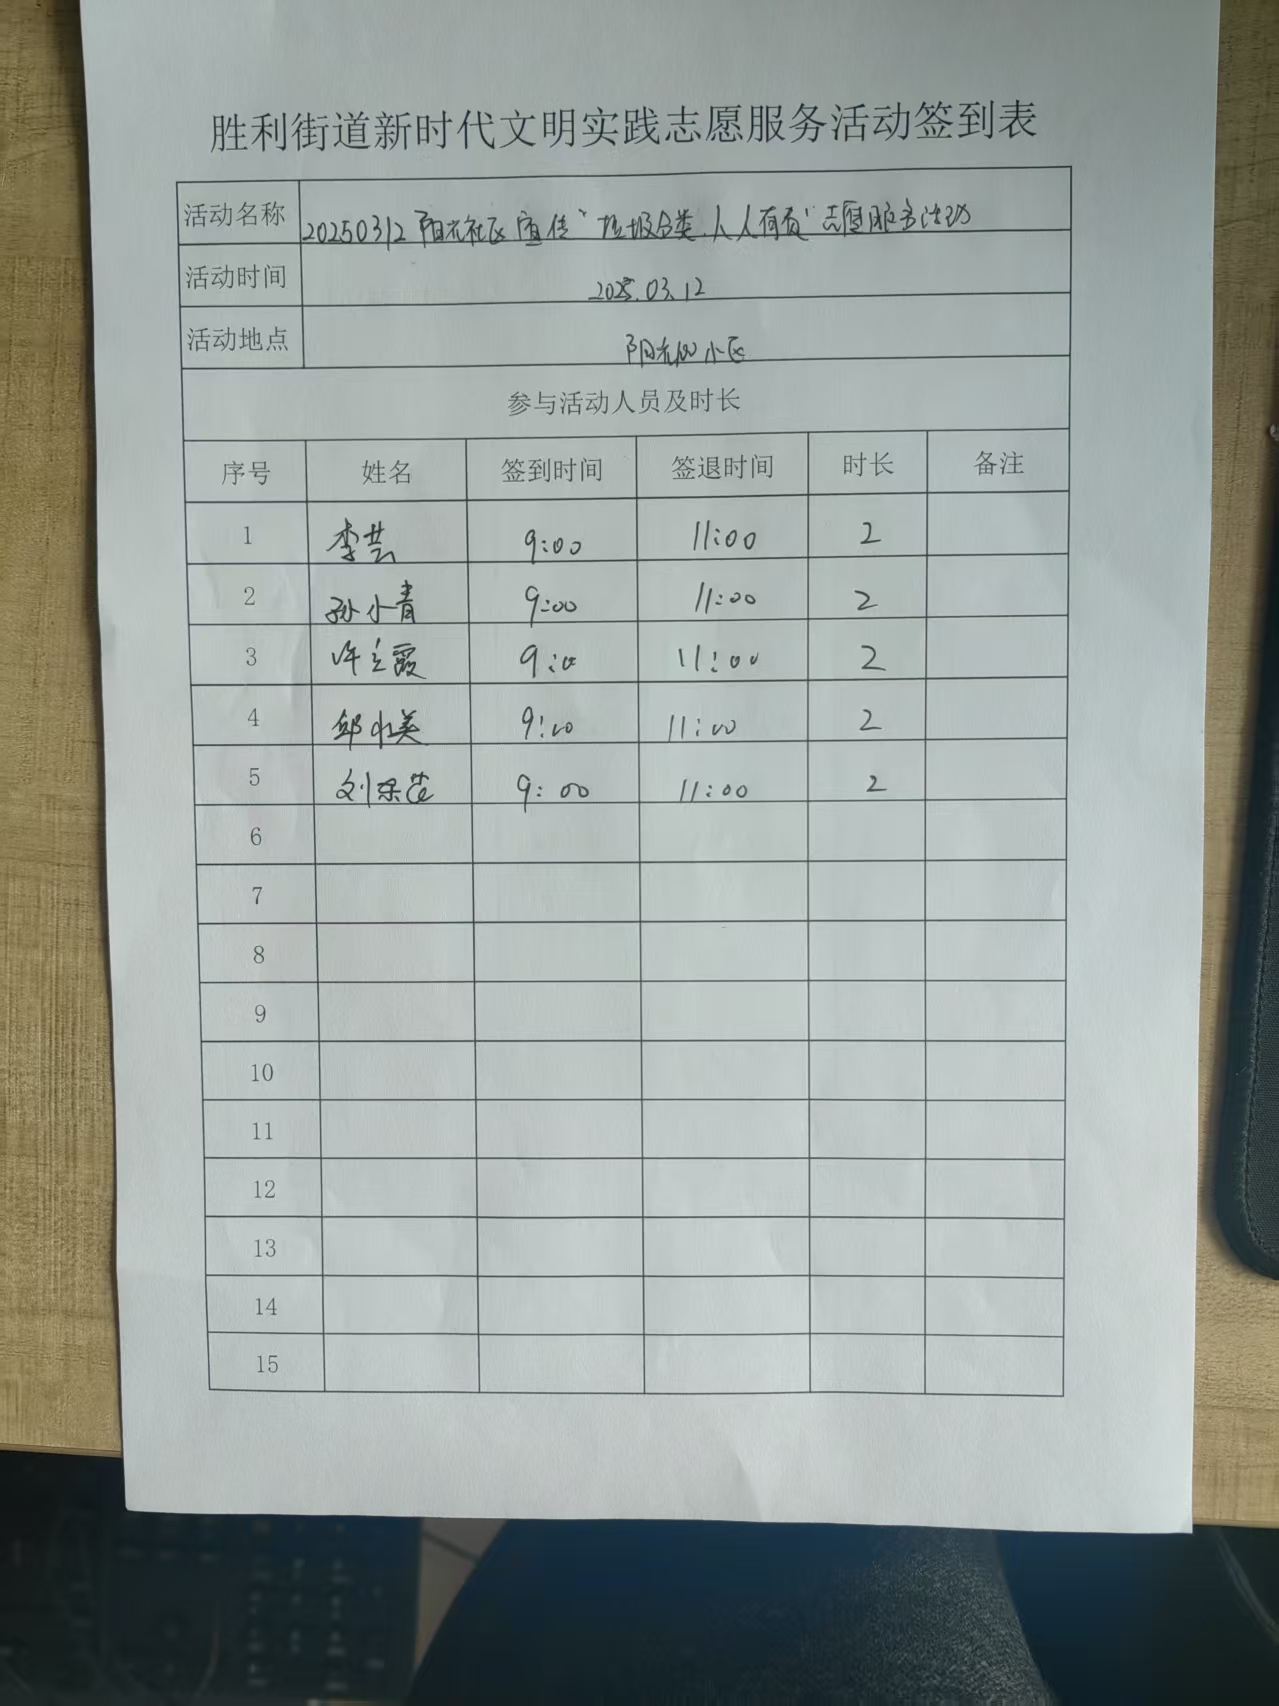 胜利街道新时代文明实践志愿服务活动签到表
活动名称 20250312阳光社区宣传“垃圾分类,人人有责”志愿服务活动
活动时间 2025.03.12
活动地点 阳光 小区
参与活动人员及时长
序号 姓名 签到时间 签退时间 时长 备注
1 李芸 9:00 11:00 2
2 孙小青 9:00 11:00 2
3 许立霞 9:00 11:00 2
4 邱 美 9:00 11:00 2
5 刘 9:00 11:00 2
6
7
8
9
10
11
12
13
14
15